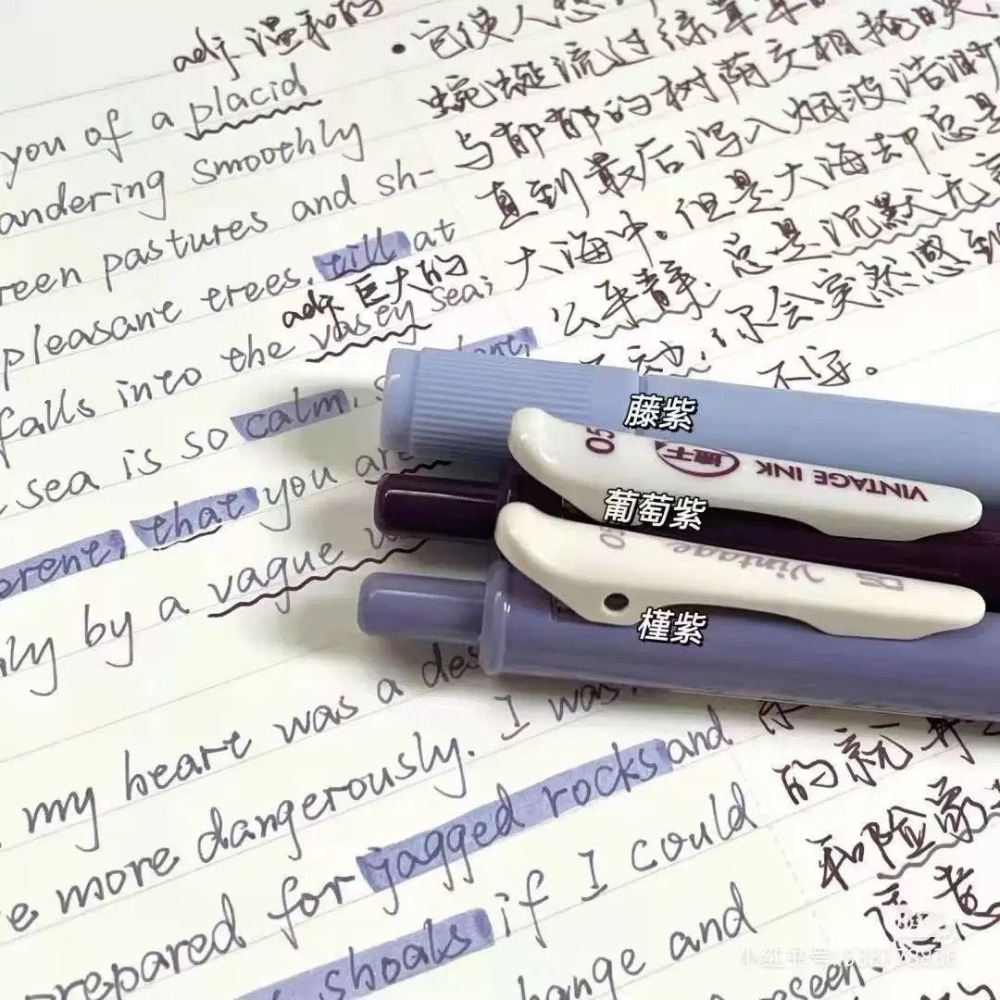 adj. 温和的
you of a placid
andering smoothly
reen pastures and sh-
pleasant trees, till at
adj. 巨大的
falls into the vastly sea;
sea is so calm,
erent, that you are
ly by a vague
my heart was a
e more dangerously. I was
repared for jagged rocks and
shoals if I could
hange and
eseen.
·它使人想
蜿蜒流过绿草
与郁郁的树荫交相掩映
直到最后泻入烟波浩渺
大海中。但是大海却总是
总是沉默无
你会突然感到
不安。
的就
和险象
藤紫
05
VINTAGE INK
葡萄紫
Vintage
槿紫
小红书号